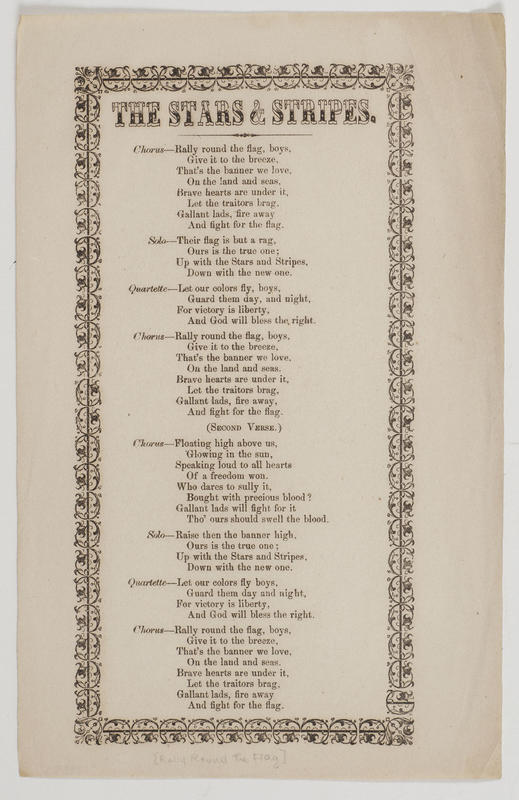 THE STARS & STRIPES.
Chorus—Rally round the flag, boys,
Give it to the breeze,
That's the banner we love,
On the land and seas,
Brave hearts are under it,
Let the traitors brag,
Gallant lads, fire away
And fight for the flag.
Solo—Their flag is but a rag,
Ours is the true one;
Up with the Stars and Stripes,
Down with the new one.
Quartette—Let our colors fly, boys,
Guard them day, and night,
For victory is liberty,
And God will bless the right.
Chorus—Rally round the flag, boys,
Give it to the breeze,
That's the banner we love,
On the land and seas.
Brave hearts are under it,
Let the traitors brag,
Gallant lads, fire away,
And fight for the flag.
(SECOND VERSE.)
Chorus—Floating high above us,
Glowing in the sun,
Speaking loud to all hearts
Of a freedom won.
Who dares to sully it,
Bought with precious blood?
Gallant lads will fight for it
Tho' ours should swell the blood.
Solo—Raise then the banner high,
Ours is the true one;
Up with the Stars and Stripes,
Down with the new one.
Quartette—Let our colors fly boys,
Guard them day and night,
For victory is liberty,
And God will bless the right.
Chorus—Rally round the flag, boys,
Give it to the breeze,
That's the banner we love,
On the land and seas.
Brave hearts are under it,
Let the traitors brag,
Gallant lads, fire away
And fight for the flag.
[Rally Round the Flag]